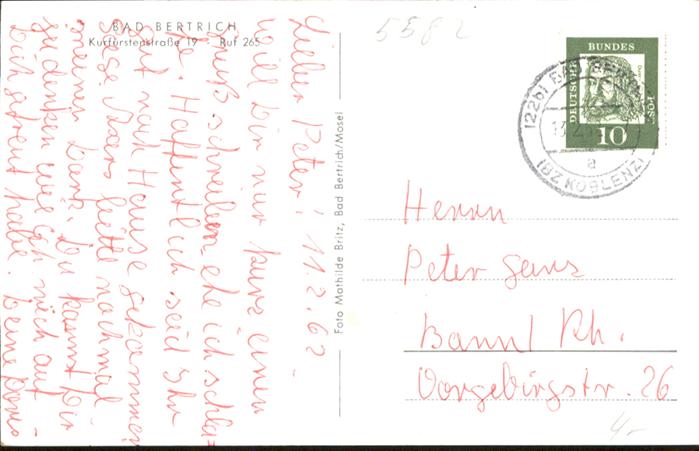 BAD BERTRICH
Kurfürstenstraße 19 Ruf 265
5582
Lieber Peter! 11.2.62
will Dir nur kurz einen
Gruß schreiben, ehe ich schla=
fe. Hoffentlich seid Ihr
gut nach Hause gekommen.
Liese Maers bitte nochmal
meinen Dank. Du kannst Dir
gedenken wie ich mich auf
Dich gefreut habe. Deine
Foto Mathilde Britz, Bad Bertrich/Mosel
DEUTSCHE BUNDES POST
10
(22b) BAD BERTRICH
a
(BZ KOBLENZ)
Herrn
Peter Gans
Bonn/Rh.
Vorgebirgstr. 26
4,-